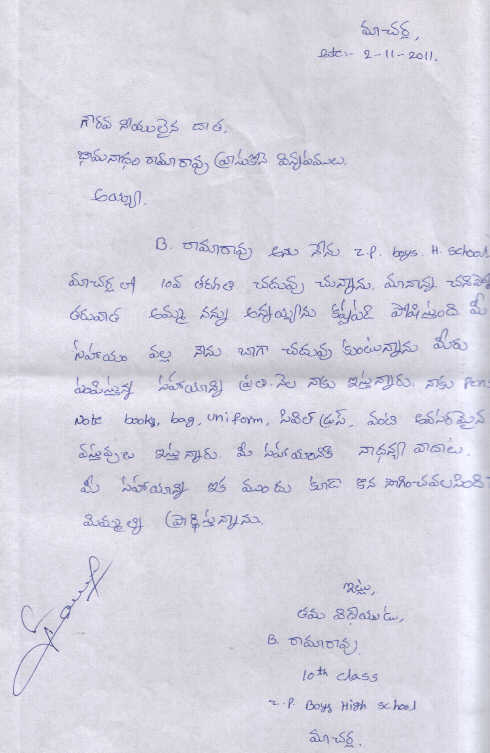 మాచర్ల,
Date:- 2-11-2011.
గౌరవ నీయులైన దాత,
భామనాధం రామారావు వ్రాసుకొనే విన్నపములు.
అయ్యా.
B. రామారావు అను నేను z.p. boys. H. school
మాచర్ల లో 10వ తరగతి చదువు చున్నాను. మానాన్న చనిపోయి
తరువాత అమ్మ నన్ను అన్నయ్యను కష్టపడి పోషిస్తుంది మీ
సహాయం వల్ల నేను బాగా చదువు కుంటున్నాను మీరు
పంపిస్తున్న సహాయాన్ని ప్రతి నెల నాకు ఇస్తున్నారు. నాకు pens
Note books, bag, uniform, సివిల్ డ్రస్, వంటి అవసరమైన
వస్తువులు ఇస్తున్నారు. మీ సహాయానికి నాధన్య వాదాలు.
మీ సహాయాన్ని ఇక ముందు కూడా కొన సాగించవలసిందిగా
మిమ్మల్ని ప్రార్థిస్తున్నాను.
ఇట్లు,
తమ విధేయుడు,
B. రామారావు
10th class
z.P. Boys High school
మాచర్ల.